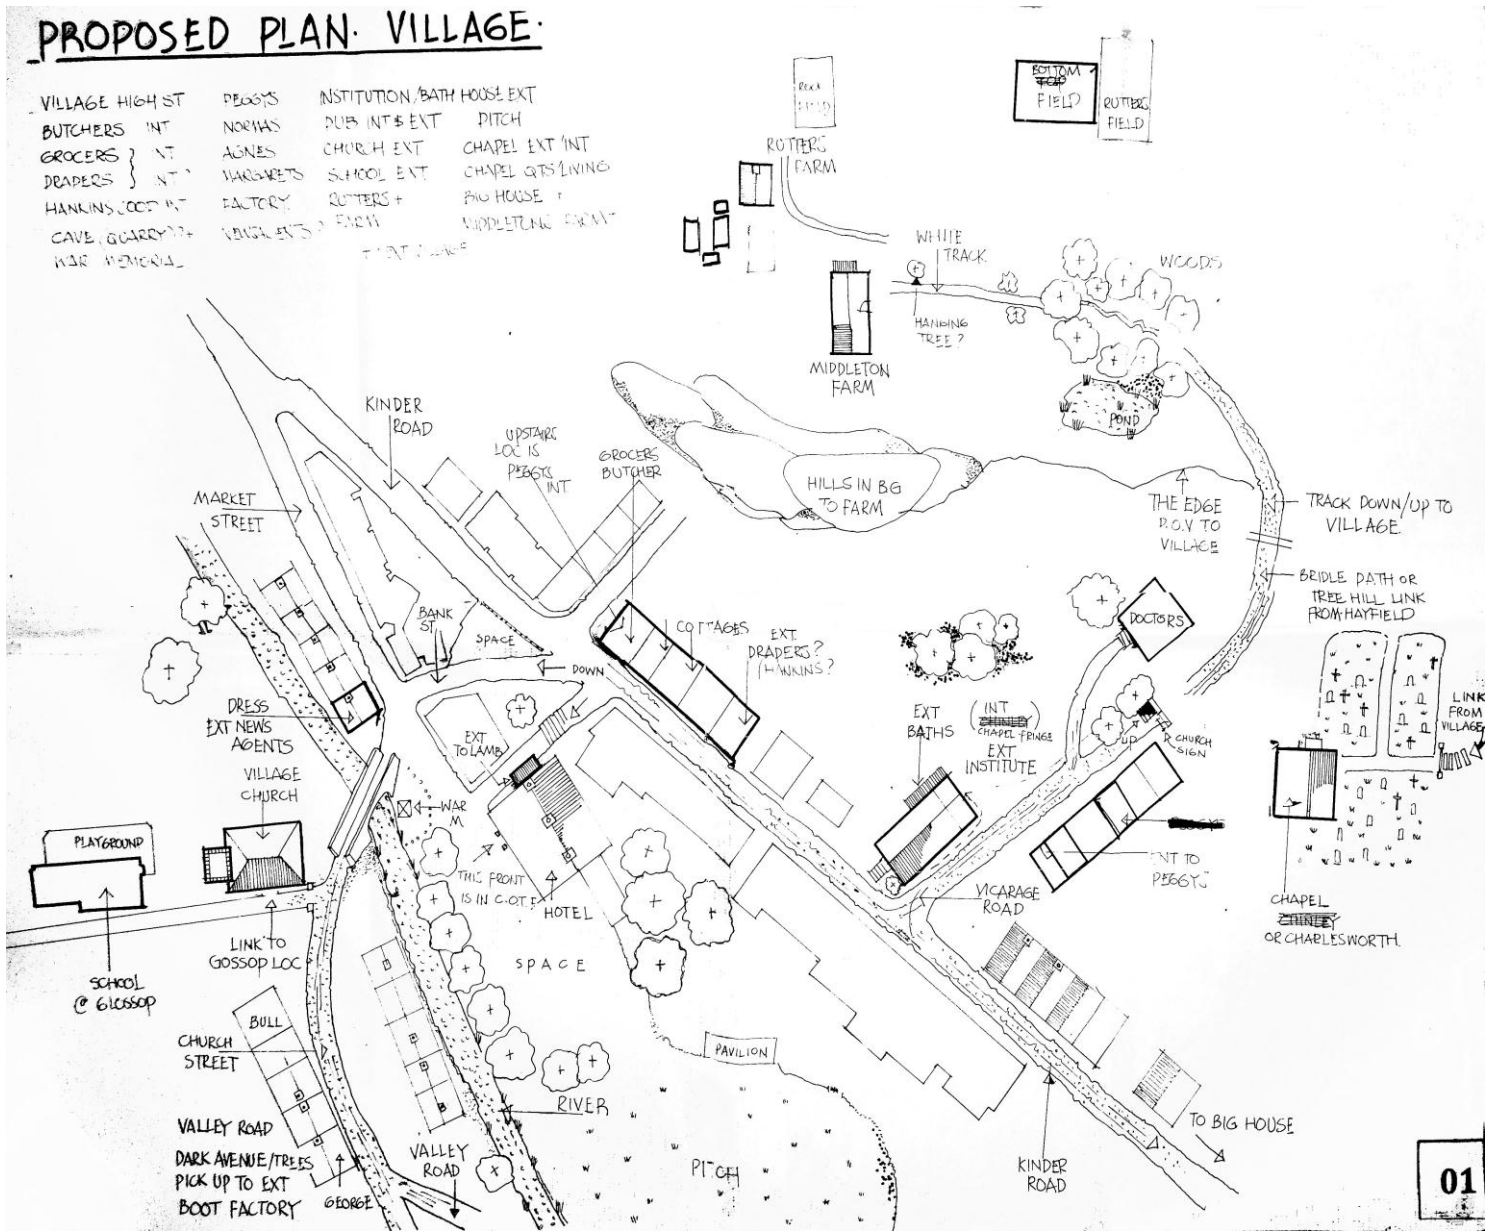 PROPOSED PLAN. VILLAGE.
VILLAGE HIGH ST
BUTCHERS INT
GROCERS } INT
DRAPERS } INT
CAVE/QUARRY
WAR MEMORIAL
PEGGYS
NORMAS
AGNES
MARGARETS
FACTORY
INSTITUTION/BATH HOUSE EXT
PUB INT & EXT
CHURCH EXT
SCHOOL EXT
RUTTERS +
FARM
PITCH
CHAPEL EXT INT
CHAPEL QTS/LIVING
BIG HOUSE
MIDDLETONS
FIELD
BOTTOM
TOP
FIELD
RUTTERS
FIELD
RUTTERS
FARM
WHITE
TRACK
WOODS
HANGING
TREE?
MIDDLETON
FARM
POND
KINDER
ROAD
UPSTAIRS
LOC IS
PEGGYS
INT
GROCERS
BUTCHER
HILLS IN BG
TO FARM
MARKET
STREET
THE EDGE
P.O.V TO
VILLAGE
TRACK DOWN/UP TO
VILLAGE
BRIDLE PATH OR
TREE HILL LINK
FROM HAYFIELD
BANK
ST
SPACE
DOWN
COTTAGES
EXT
DRAPERS?
(HANKINS?
DOCTORS
DRESS
EXT NEWS
AGENTS
EXT
TO LAMB
EXT
BATHS
(INT
CHINLEY
CHAPEL FRINGE)
EXT
INSTITUTE
UP
CHURCH
SIGN
LINK
FROM
VILLAGE
VILLAGE
CHURCH
WAR
M
PLAYGROUND
THIS FRONT
IS IN C.O.T.E
HOTEL
VICARAGE
ROAD
INT TO
PEGGYS
CHAPEL
CHINLEY
OR CHARLESWORTH
LINK TO
GOSSOP LOC
SPACE
SCHOOL
@ GLOSSOP
BULL
CHURCH
STREET
PAVILION
RIVER
VALLEY ROAD
DARK AVENUE/TREES
PICK UP TO EXT
BOOT FACTORY
GEORGE
VALLEY
ROAD
PITCH
KINDER
ROAD
TO BIG HOUSE
01